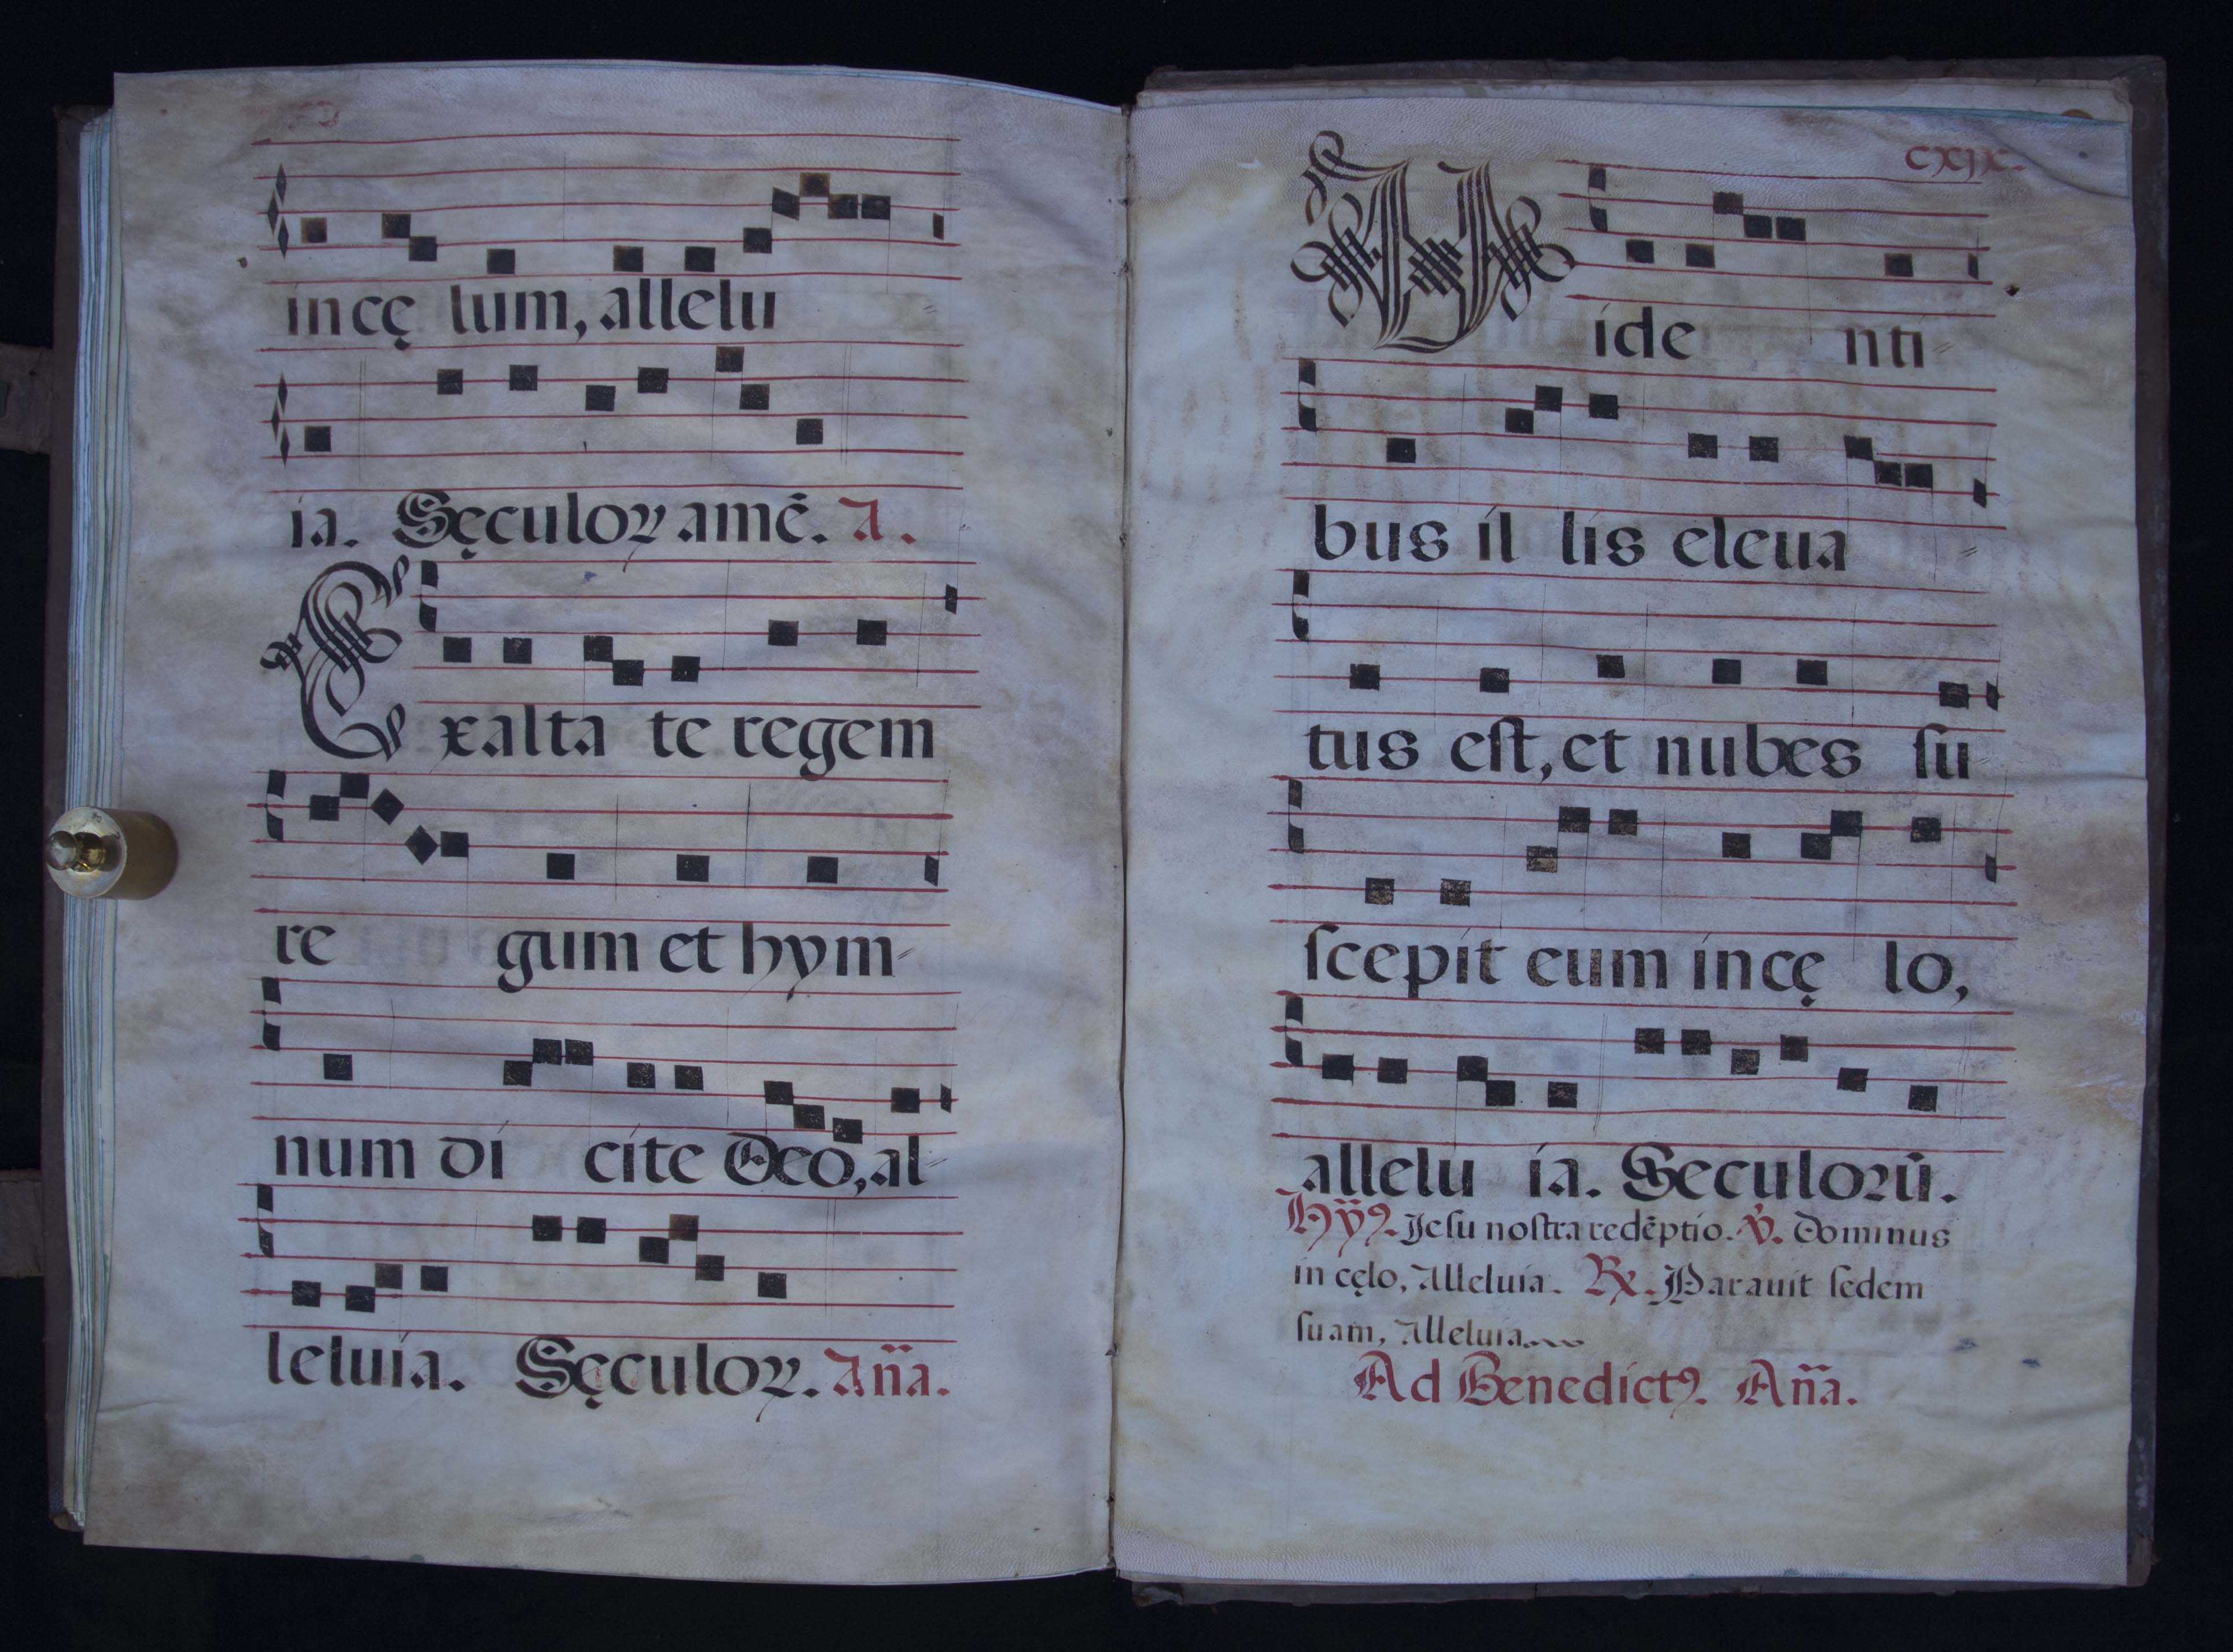 in cę lum, allelu
ia. Sęculoꝝ amē. A.
Exalta te regem
re gum et hym-
num di cite Deo, al-
leluia. Sęculoꝝ. Añ̃a.
cxix.
Vide nti-
bus il lis eleua
tus eſt, et nubes ſu
ſcepit eum in cę lo,
allelu ia. Seculorū.
Hỹꝰ. Jeſu noſtra redēptio. ℣. Dominus
in cęlo, Alleluia. ℞. Parauit ſedem
ſuam, Alleluia.
Ad Benedictꝰ. Añ̃a.